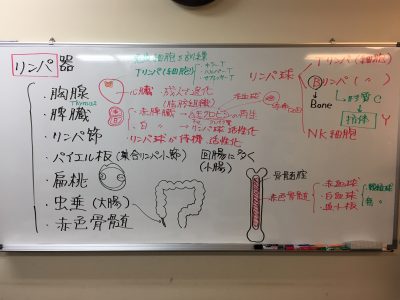 リンパ器
免疫細胞を訓練
Tリンパ(細胞)
・キラーT
・ヘルパーT
・サプレッサーT
・胸腺
Thymus
心臓
成人で退化
(脂肪組織)
・脾臓
・赤脾臓→ヘモグロビンの再生
・白 〃 →リンパ球 活性化
・リンパ節
リンパ球が待機 活性化
・パイエル板(集合リンパ小節)
回腸に多く
(小腸)
・扁桃
・虫垂(大腸)
・赤色骨髄
骨髄腔
赤色骨髄
・赤血球
・白血球
・血小板
顆粒球
リンパ球
Tリンパ(細胞)
Bリンパ( 〃 )
Bone
形質C
抗体
Y
NK細胞